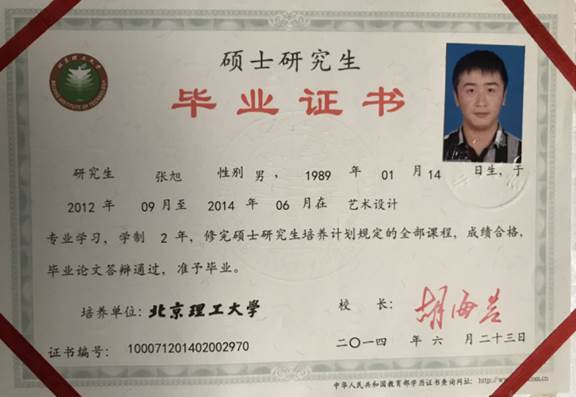 硕士研究生
毕业证书
研究生 张旭 性别 男，1989 年 01 月 14 日生，于
2012 年 09 月至 2014 年 06 月在 艺术设计
专业学习，学制 2 年，修完硕士研究生培养计划规定的全部课程，成绩合格，
毕业论文答辩通过，准予毕业。
培养单位：北京理工大学
校 长：胡海岩
证书编号：100071201402002970
二〇一四 年 六 月 二十三日
中华人民共和国教育部学历证书查询网址：